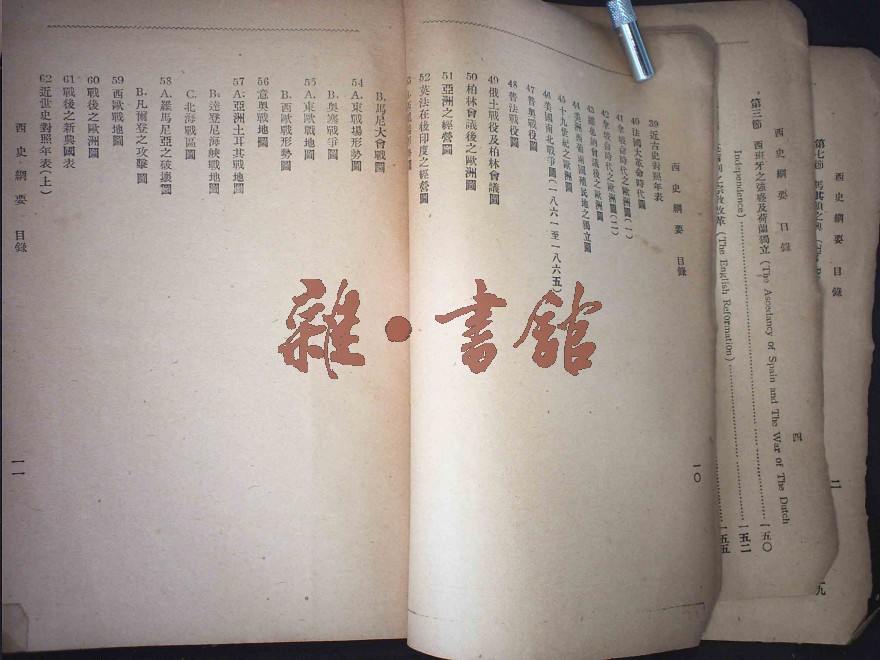 第七節
西史綱要　目錄
第三節　西班牙之強盛及荷蘭獨立(The Ascedancy of Spain and The War of The Dutch
Independence)……一五〇
之宗教改革(The English Reformation)……一五二
一五五
西史綱要　目錄
四
西史綱要　目錄
39近古史對照年表
40法國大革命時代圖
41拿坡崙時代之歐洲圖(一)
42拿坡崙時代之歐洲圖(二)
43維也納會議後之歐洲圖
44美洲西葡兩國殖民地之獨立圖
45十九世紀之歐洲圖
46美國南北戰爭圖(一八六一至一八六五)
47普奧戰役圖
48普法戰役圖
49俄土戰役及柏林會議圖
50柏林會議後之歐洲圖
51亞洲之經營圖
52英法在後印度之經營圖
一〇
B.馬尼大會戰圖
54A.東戰場形勢圖
B.奧塞戰爭圖
55A.東歐戰地圖
B.西歐戰形勢圖
56意奧戰地圖
57A.亞洲土耳其戰地圖
B.達登尼海峽戰地圖
C.北海戰區圖
58A.羅馬尼亞之破壞圖
B.凡爾登之攻擊圖
59西歐戰地圖
60戰後之歐洲圖
61戰後之新興國表
62近世史對照年表(上)
西史綱要　目錄
一一
雜·書館